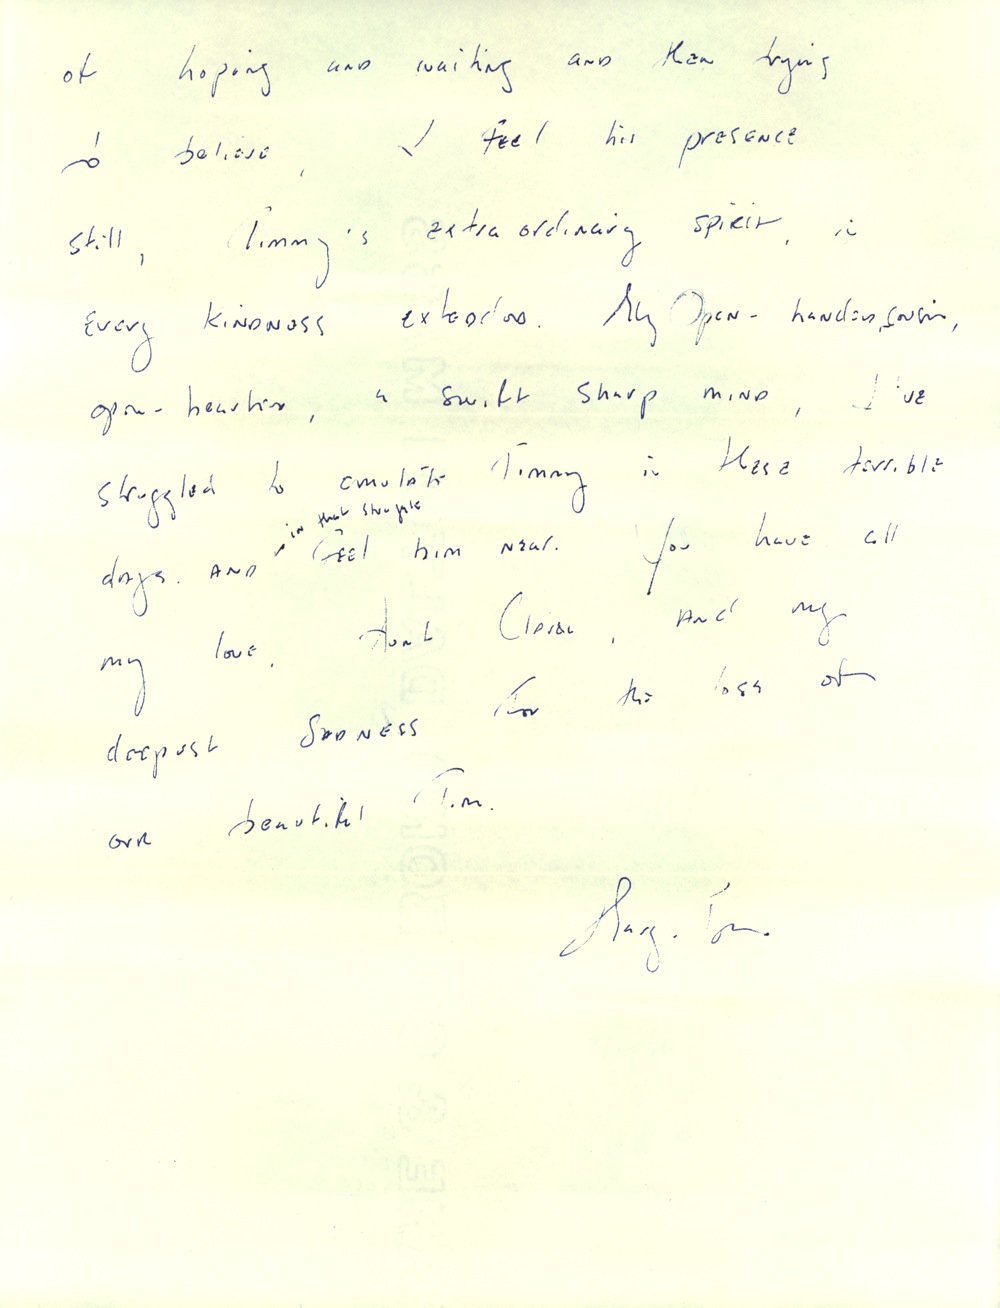 of hoping and waiting and then trying
to believe, I feel his presence
still, Timmy's extraordinary spirit, in
every kindness extended. My open-handed, cousin,
open-hearted, a swift sharp mind, I've
struggled to emulate Timmy in these terrible
in that struggle
days. And feel him near. You have all
my love, Aunt, and my
deepest sadness for the loss of
our beautiful Tim.